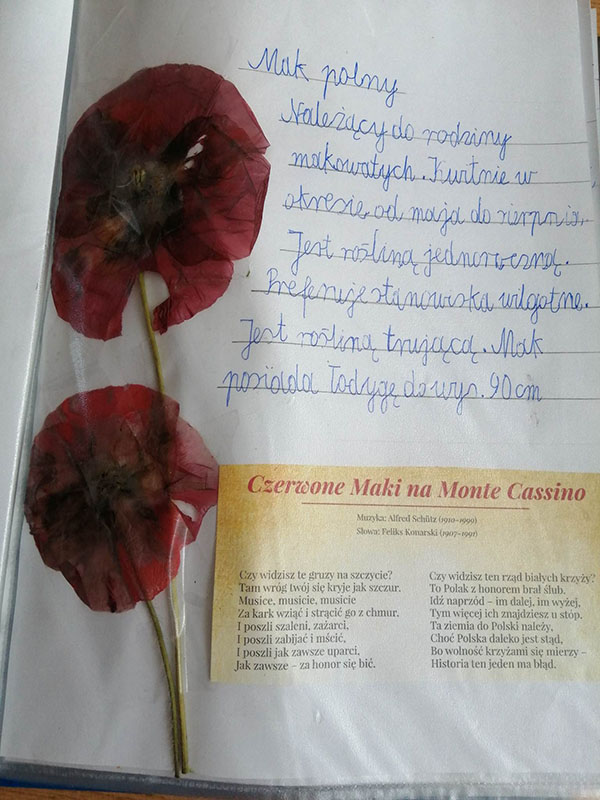 Mak polny
Należący do rodziny
makowatych. Kwitnie w
okresie od maja do sierpnia.
Jest rośliną jednoroczną.
Preferuje stanowiska wilgotne.
Jest rośliną trującą. Mak
posiada łodygę do wys. 90 cm
Czerwone Maki na Monte Cassino
Muzyka: Alfred Schütz (1910–1999)
Słowa: Feliks Konarski (1907–1991)
Czy widzisz te gruzy na szczycie?
Tam wróg twój się kryje jak szczur.
Musice, musicie, musicie
Za kark wziąć i strącić go z chmur.
I poszli szaleni, zażarci,
I poszli zabijać i mścić,
I poszli jak zawsze uparci,
Jak zawsze – za honor się bić.
Czy widzisz ten rząd białych krzyży?
To Polak z honorem brał ślub.
Idź naprzód – im dalej, im wyżej,
Tym więcej ich znajdziesz u stóp.
Ta ziemia do Polski należy,
Choć Polska daleko jest stąd,
Bo wolność krzyżami się mierzy –
Historia ten jeden ma błąd.